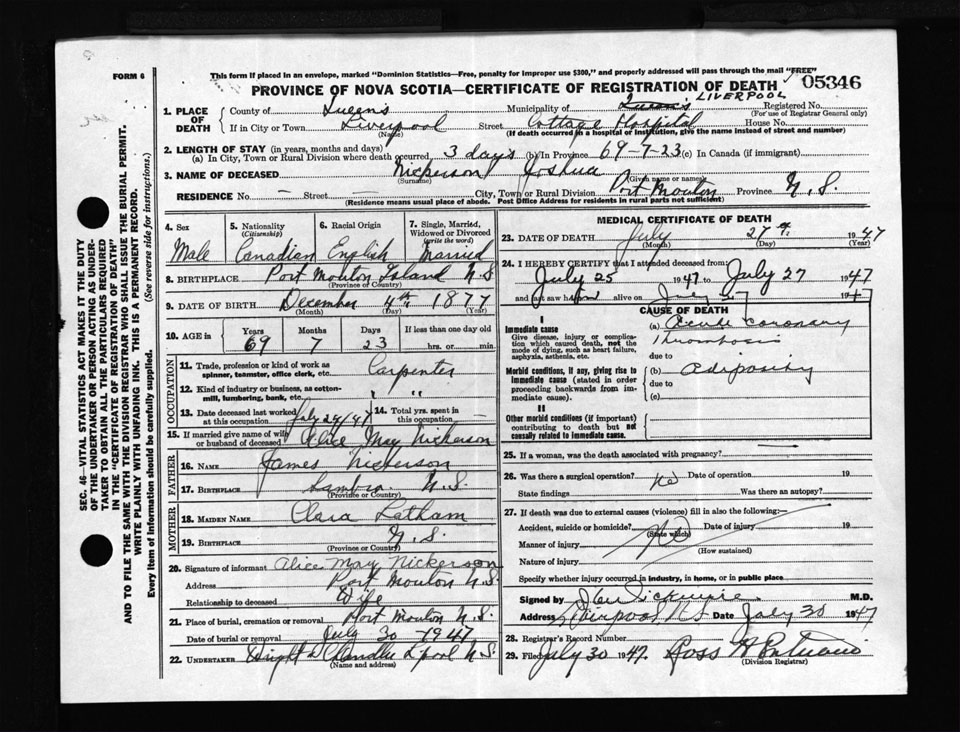 This form if placed in an envelope, marked "Dominion Statistics—Free, penalty for improper use $300," and properly addressed will pass through the mail "FREE"
FORM 6
PROVINCE OF NOVA SCOTIA—CERTIFICATE OF REGISTRATION OF DEATH
05346
1. PLACE OF DEATH
County of Queens Municipality of Queens LIVERPOOL Registered No.
(For use of Registrar General only)
If in City or Town Liverpool Street Cottage Hospital House No.
(Name) (If death occurred in a hospital or institution, give the name instead of street and number)
2. LENGTH OF STAY (in years, months and days)
(a) In City, Town or Rural Division where death occurred 3 days (b) In Province 69-7-23 (c) In Canada (if immigrant)
3. NAME OF DECEASED Nickerson Joshua
(Surname) (Given name or names)
RESIDENCE No. — Street — City, Town or Rural Division Port Mouton Province N.S.
(Residence means usual place of abode. Post Office Address for residents in rural parts not sufficient)
4. Sex Male
5. Nationality (Citizenship) Canadian
6. Racial Origin English
7. Single, Married, Widowed or Divorced (write the word) Married
8. BIRTHPLACE Port Mouton Island N.S.
(Province or Country)
9. DATE OF BIRTH December 4th 1877
(Month) (Day) (Year)
10. AGE in Years 69 Months 7 Days 23 If less than one day old
hrs. or min.
OCCUPATION
11. Trade, profession or kind of work as spinner, teamster, office clerk, etc. Carpenter
12. Kind of industry or business, as cotton-mill, lumbering, bank, etc. " "
13. Date deceased last worked at this occupation July 24/47
14. Total yrs. spent in this occupation —
15. If married give name of wife or husband of deceased Alice May Nickerson
FATHER
16. NAME James Nickerson
17. BIRTHPLACE Sambro N.S.
(Province or Country)
MOTHER
18. MAIDEN NAME Clara Latham
19. BIRTHPLACE N.S.
(Province or Country)
20. Signature of informant Alice May Nickerson
Address Port Mouton N.S.
Relationship to deceased Wife
21. Place of burial, cremation or removal Port Mouton N.S.
Date of burial or removal July 30 1947
22. UNDERTAKER Wright & Chandler L'pool N.S.
(Name and address)
MEDICAL CERTIFICATE OF DEATH
23. DATE OF DEATH July 27th 1947
(Month) (Day) (Year)
24. I HEREBY CERTIFY that I attended deceased from:
July 25 1947 to July 27 1947
and last saw him alive on July 27 194
CAUSE OF DEATH
I
Immediate cause
Give disease, injury or complication which caused death, not the mode of dying, such as heart failure, asphyxia, asthenia, etc.
(a) Acute coronary
Thrombosis
due to
Morbid conditions, if any, giving rise to immediate cause (stated in order proceeding backwards from immediate cause).
(b) Adiposity
due to
(c)
II
Other morbid conditions (if important) contributing to death but not causally related to immediate cause.
25. If a woman, was the death associated with pregnancy?
26. Was there a surgical operation? No Date of operation 19
State findings Was there an autopsy?
27. If death was due to external causes (violence) fill in also the following:
Accident, suicide or homicide? Date of injury 19
(State which)
Manner of injury No
(How sustained)
Nature of injury
Specify whether injury occurred in industry, in home, or in public place
Signed by M.D.
Address Liverpool N.S. Date July 30 1947
28. Registrar's Record Number
29. Filed July 30 1947. Ross H
(Division Registrar)
SEC. 46—VITAL STATISTICS ACT MAKES IT THE DUTY
OF THE UNDERTAKER OR PERSON ACTING AS UNDER-
TAKER TO OBTAIN ALL THE PARTICULARS REQUIRED
IN THE "CERTIFICATE OF REGISTRATION OF DEATH"
AND TO FILE THE SAME WITH THE DIVISION REGISTRAR WHO SHALL ISSUE THE BURIAL PERMIT.
WRITE PLAINLY WITH UNFADING INK. THIS IS A PERMANENT RECORD.
Every item of information should be carefully supplied. (See reverse side for instructions.)